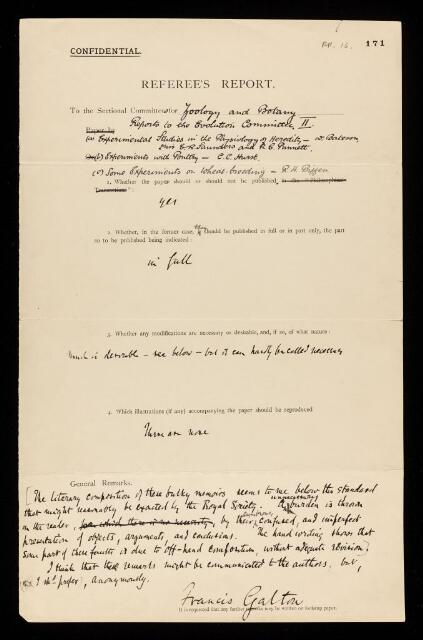 RR. 16. 171
CONFIDENTIAL.
REFEREE'S REPORT.
To the Sectional Committee for Zoology and Botany
Reports to the Evolution Committee, II.
Paper by
(a) Experimental Studies in the Physiology of Heredity – W. Bateson,
Miss E. R. Saunders and R. C. Punnett.
(b) Experiments with Poultry – C. C. Hurst.
(c) Some Experiments on Wheat-breeding – R. H. Biffen
1. Whether the paper should or should not be published in the "Philosophical
Transactions":
yes
2. Whether, in the former case, it should be published in full or in part only, the part
so to be published being indicated:
in full
3. Whether any modifications are necessary or desirable, and, if so, of what nature:
Much is desirable – see below – but it can hardly be called necessary
4. Which illustrations (if any) accompanying the paper should be reproduced
There are none
General Remarks.
[The literary composition of these bulky memoirs seems to me below the standard
that might reasonably be exacted by the Royal Society. An unnecessary burden is thrown
on the reader, for which there is no necessity, by their confused, and imperfect
presentation of objects, arguments, and conclusions. The handwriting shows that
some part of these faults is due to off-hand composition, without adequate revision.]
I think that these remarks might be communicated to the authors, but,
I shd. prefer, anonymously.
Francis Galton
It is requested that any further remarks may be written on foolscap paper.